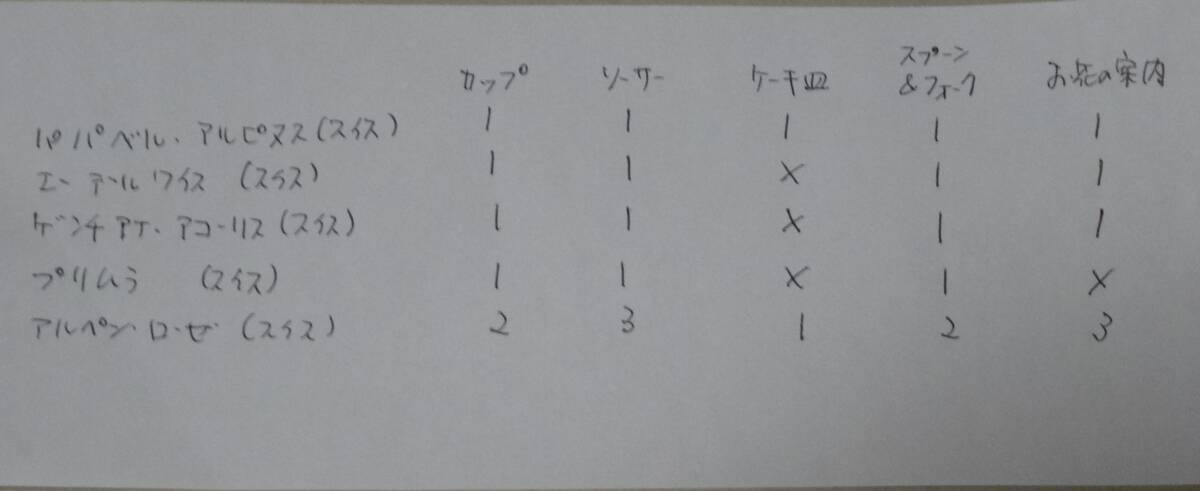 カップ ソーサー ケーキ皿 スプーン&フォーク お花の案内
パパベル・アルピヌス(スイス) 1 1 1 1 1
エーデールワイス (スイス) 1 1 × 1 1
ゲンチアナ・アコーリス(スイス) 1 1 × 1 1
プリムラ (スイス) 1 1 × 1 ×
アルペン・ローゼ(スイス) 2 3 1 2 3